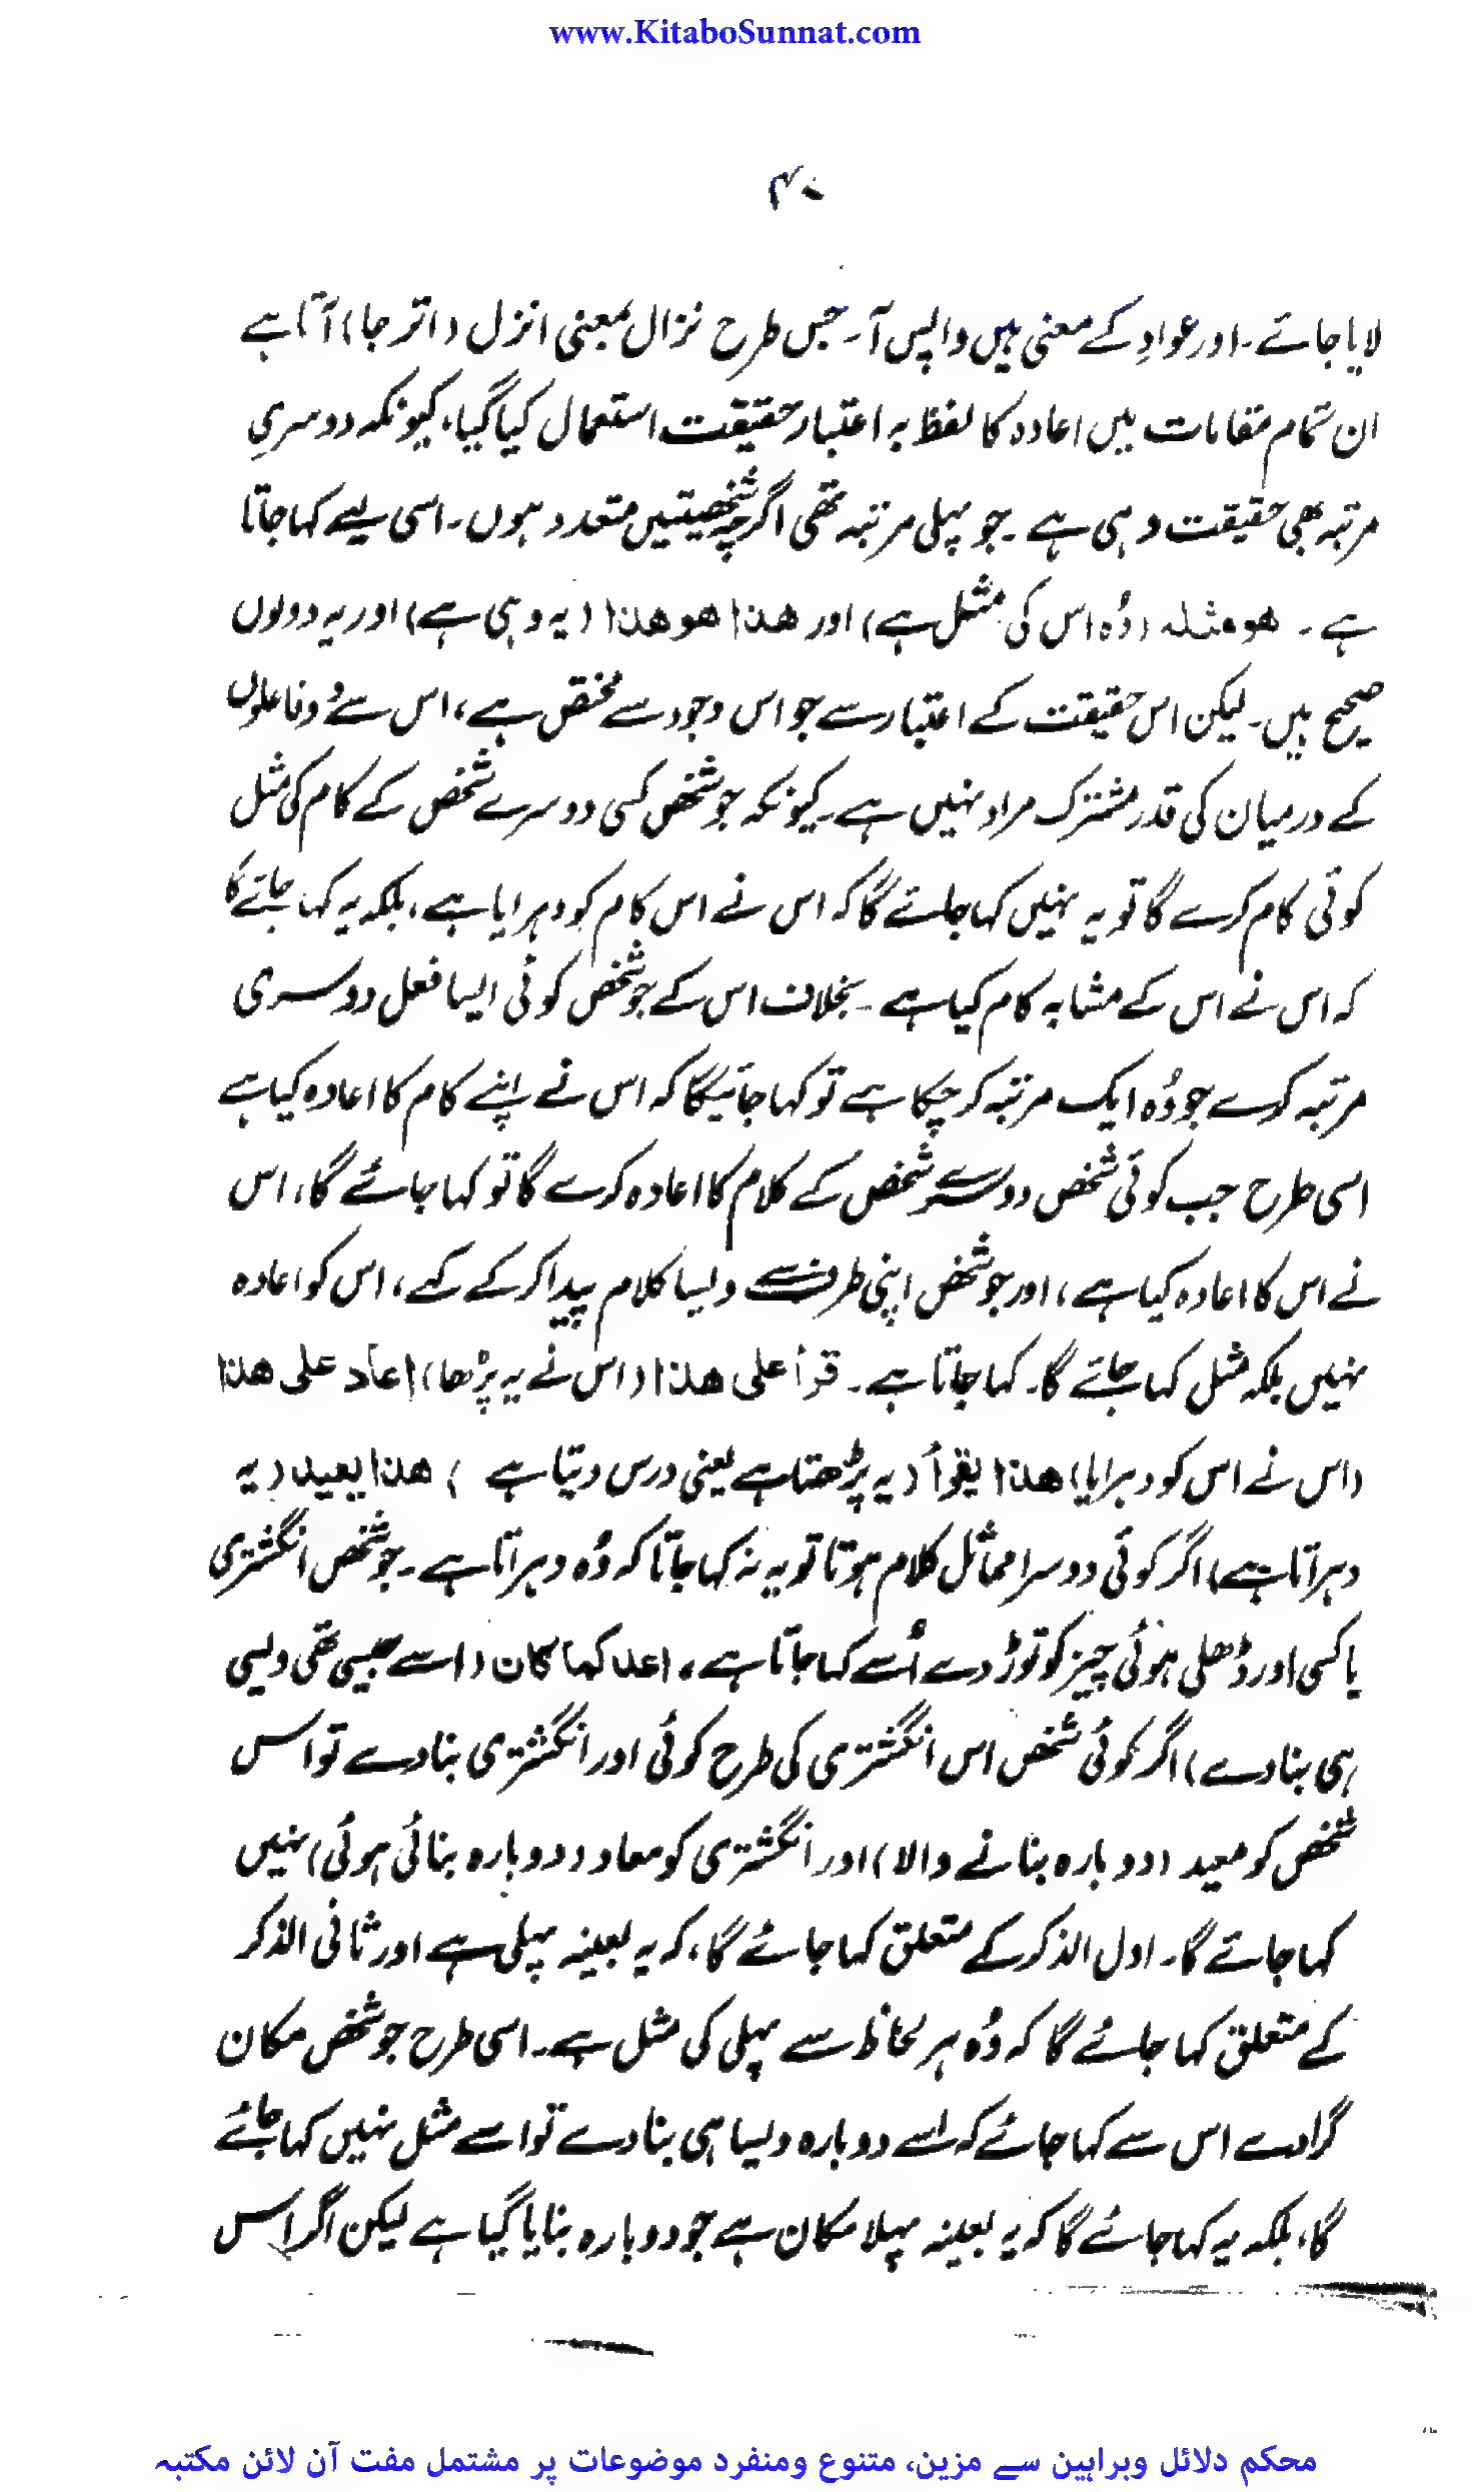 www.KitaboSunnat.com
۴۰
لایا جائے۔ اور عوادِ کے معنی ہیں واپس آ۔ جس طرح نزال بمعنی انزل (اتر جا) آتا ہے
ان تمام مقامات میں اعادہ کا لفظ بہ اعتبار حقیقت استعمال کیا گیا، کیونکہ دوسری
مرتبہ بھی حقیقت وہی ہے۔ جو پہلی مرتبہ تھی اگرچہ شخصیتیں متعدد ہوں۔ اسی لیے کہا جاتا
ہے۔ ھو مثلہ (وُہ اس کی مثل ہے) اور ھذا ھو ھذا (یہ وہی ہے) اور یہ دونوں
صحیح ہیں۔ لیکن اس حقیقت کے اعتبار سے جو اس وجود سے مختص ہے، اس سے دو فاعلوں
کے درمیان کی قدر مشترک مراد نہیں ہے۔ کیونکہ جو شخص کسی دوسرے شخص کے کام کی مثل
کوئی کام کرے گا تو یہ نہیں کہا جائے گا کہ اس نے اس کام کو دہرایا ہے، بلکہ یہ کہا جائے گا
کہ اس نے اس کے مشابہ کام کیا ہے۔ بخلاف اس کے جو شخص کوئی ایسا فعل دوسری
مرتبہ کرے جو وُہ ایک مرتبہ کر چکا ہے تو کہا جائیگا کہ اس نے اپنے کام کا اعادہ کیا ہے
اسی طرح جب کوئی شخص دوسرے شخص کے کلام کا اعادہ کرے گا تو کہا جائے گا، اس
نے اس کا اعادہ کیا ہے، اور جو شخص اپنی طرف سے ویسا کلام پیدا کر کے کہے، اس کو اعادہ
نہیں بلکہ مثل کہا جائے گا۔ کہا جاتا ہے۔ قرأ علی ھذا (اس نے یہ پڑھا) اعاد علی ھذا
(اس نے اس کو دہرایا) ھذا یقرأ (یہ پڑھتا ہے یعنی درس دیتا ہے) ھذا یعید (یہ
دہراتا ہے) اگر کوئی دوسرا مماثل کلام ہوتا تو یہ نہ کہا جاتا کہ وُہ دہراتا ہے۔ جو شخص انگشتری
یا کسی اور ڈھلی ہوئی چیز کو توڑ دے اُسے کہا جاتا ہے، اعد کما کان (اسے جیسی تھی ویسی
ہی بنا دے) اگر کوئی شخص اس انگشتری کی طرح کوئی اور انگشتری بنا دے تو اس
شخص کو معید (دوبارہ بنانے والا) اور انگشتری کو معاد (دوبارہ بنائی ہوئی) نہیں
کہا جائے گا۔ اول الذکر کے متعلق کہا جائے گا، کہ یہ بعینہ پہلی ہے اور ثانی الذکر
کے متعلق کہا جائے گا کہ وُہ ہر لحاظ سے پہلی کی مثل ہے۔ اسی طرح جو شخص مکان
گرا دے اس سے کہا جائے کہ اسے دوبارہ ویسا ہی بنا دے تو اسے مثل نہیں کہا جائے
گا، بلکہ یہ کہا جائے گا کہ یہ بعینہ پہلا مکان ہے جو دوبارہ بنایا گیا ہے لیکن اگر اس
محکم دلائل وبراہین سے مزین، متنوع ومنفرد موضوعات پر مشتمل مفت آن لائن مکتبہ